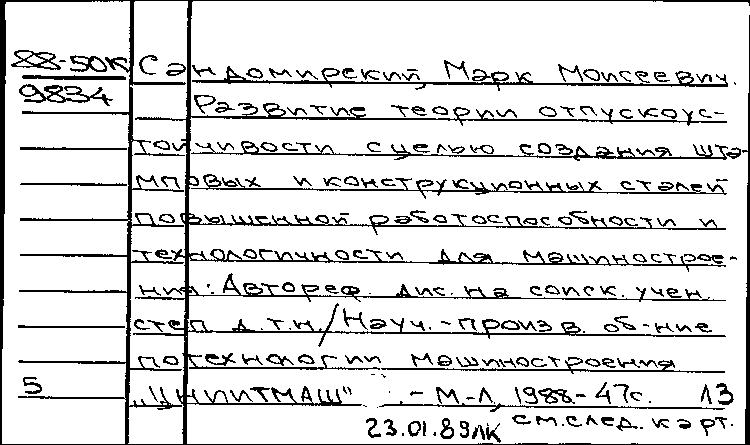 88-50К Сандомирский, Марк Моисеевич.
9834 Развитие теории отпускоус-
тойчивости с целью создания шта-
мповых и конструкционных сталей
повышенной работоспособности и
технологичности для машинострое-
ния: Автореф. дис. на соиск. учен.
степ. д.т.н./Науч.-произв. об-ние
по технологии машиностроения
5 "ЦНИИТМАШ" .- М.-Л, 1988-47с. Л3
23.01.89ЛК см.след. карт.